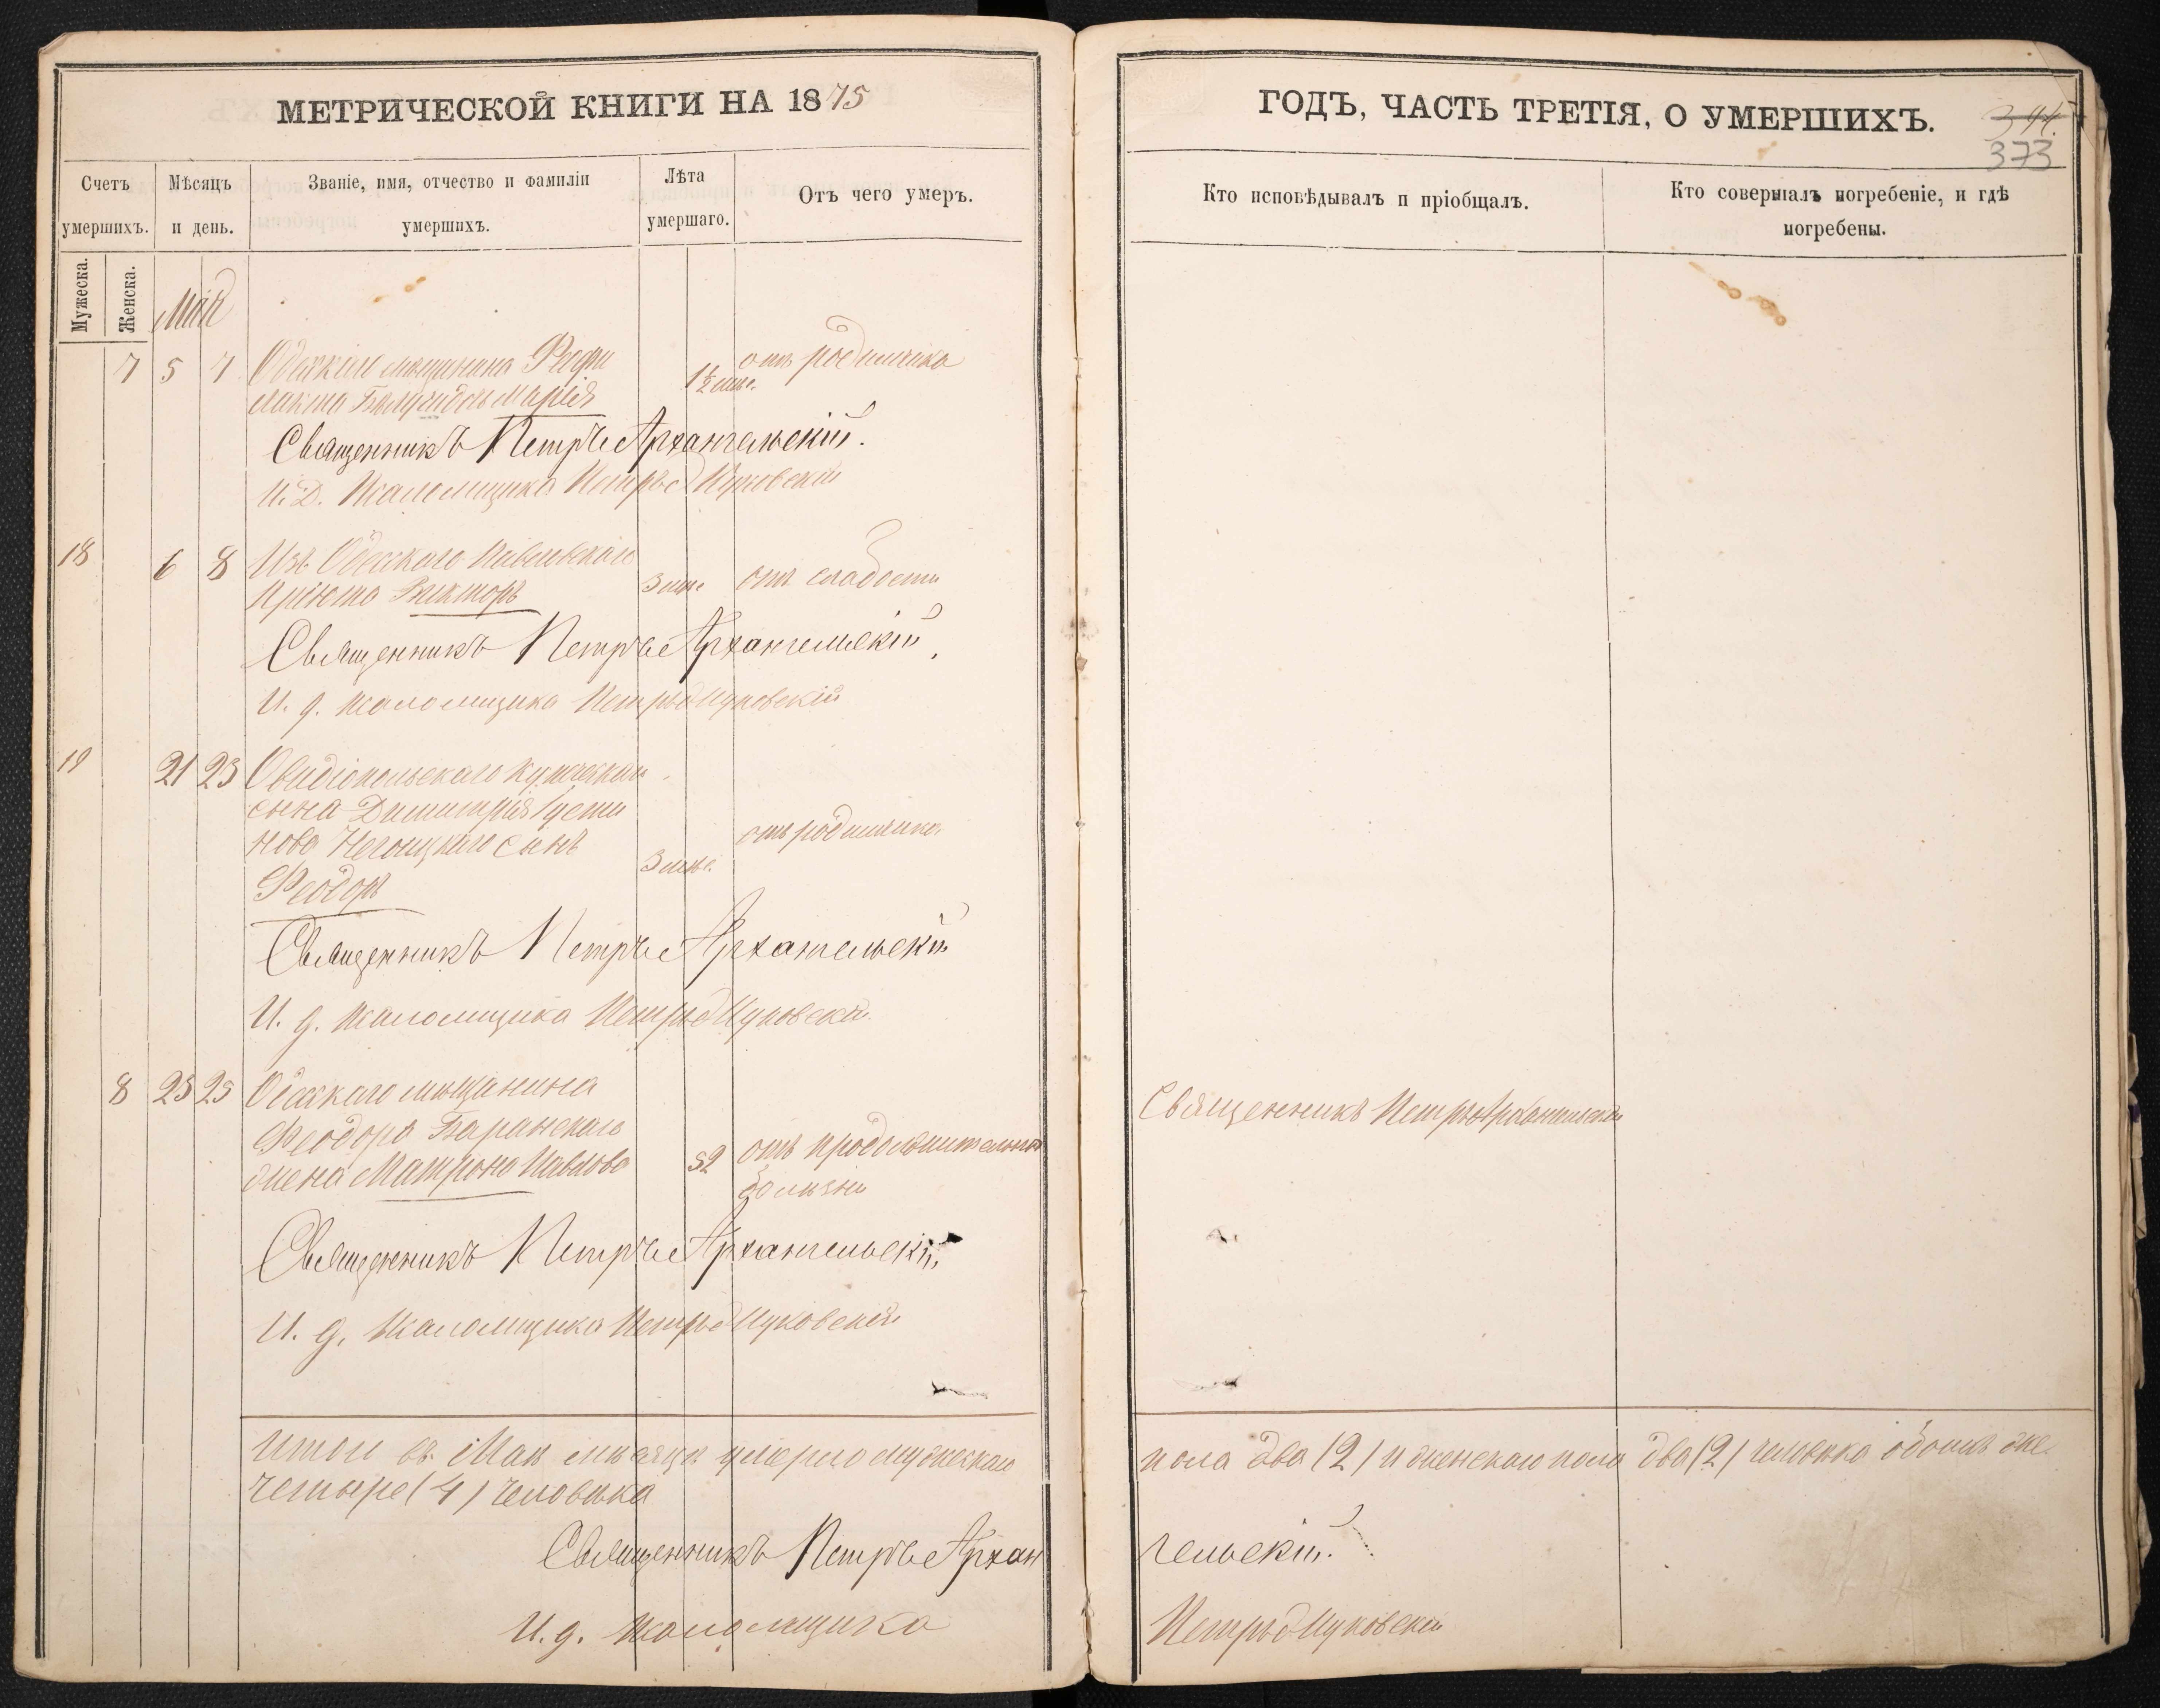 МЕТРИЧЕСКОЙ КНИГИ НА 1875
Счетъ умершихъ.
Мужеска.
Женска.
Мѣсяцъ и день.
Званіе, имя, отчество и фамиліи умершихъ.
Лѣта умершаго.
Отъ чего умеръ.
Май
7 5 7 мѣщанина
Марія
1½ мѣс.
отъ родимчика
Священникъ Петръ Архангельскій.
И. Д. Псаломщика Петръ
18 6 8 Изъ Одесскаго Павловскаго
пріюта Викторъ
3 мѣс
отъ слабости
Священникъ Петръ Архангельскій,
И. д. псаломщика Петръ
19 21 23 Овидіопольскаго купеческаго
сына Димитрія
сынъ
Феодоръ
3 мѣс.
отъ родимчика
Священникъ Петръ Архангельскій
И. д. псаломщика Петръ
8 23 25 Одесскаго мѣщанина
Феодора Баранскаго
жена Матрона Павлова
52
отъ продолжительной
болѣзни
Священникъ Петръ Архангельскій,
И. д. псаломщика Петръ
Итого въ Маѣ мѣсяцѣ умерло мужескаго
четыре (4) человѣка
Священникъ Петръ Архан
И. д. псаломщика
ГОДЪ, ЧАСТЬ ТРЕТІЯ, О УМЕРШИХЪ.
344.
373
Кто исповѣдывалъ и пріобщалъ.
Кто совершалъ погребеніе, и гдѣ
погребены.
Священникъ Петръ Архангельскій
пола два (2) и женскаго пола два (2) человѣка обоихъ же
гельскій.
Петръ